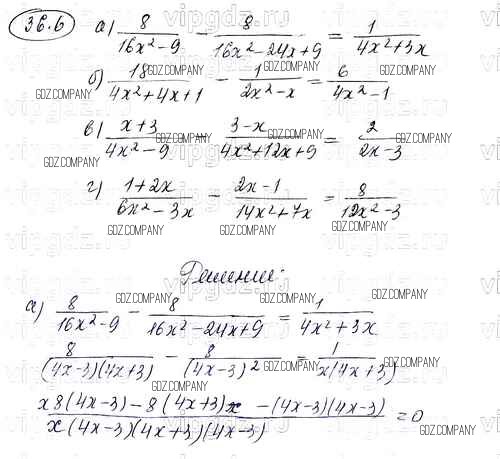 36.6 а) 8/(16x²-9) - 8/(16x²-24x+9) = 1/(4x²+3x)
б) 18/(4x²+4x+1) - 1/(2x²-x) = 6/(4x²-1)
в) (x+3)/(4x²-9) - (3-x)/(4x²+12x+9) = 2/(2x-3)
г) (1+2x)/(6x²-3x) - (2x-1)/(14x²+7x) = 8/(12x²-3)
Решение:
а) 8/(16x²-9) - 8/(16x²-24x+9) = 1/(4x²+3x)
8/((4x-3)(4x+3)) - 8/(4x-3)² = 1/(x(4x+3))
(x8(4x-3)-8(4x+3)x-(4x-3)(4x-3))/(x(4x-3)(4x+3)(4x-3)) = 0